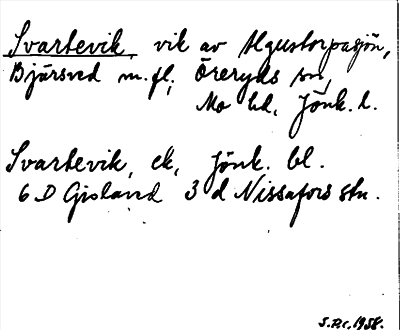 Svartevik, vik av Algustorpasjön,
Bjärsved m.fl., Öreryds sn,
Mo hd, Jönk. l.
Svartevik, ek, Jönk. bl.
6 D Gisland 3 d Nissafors stn.
1958.